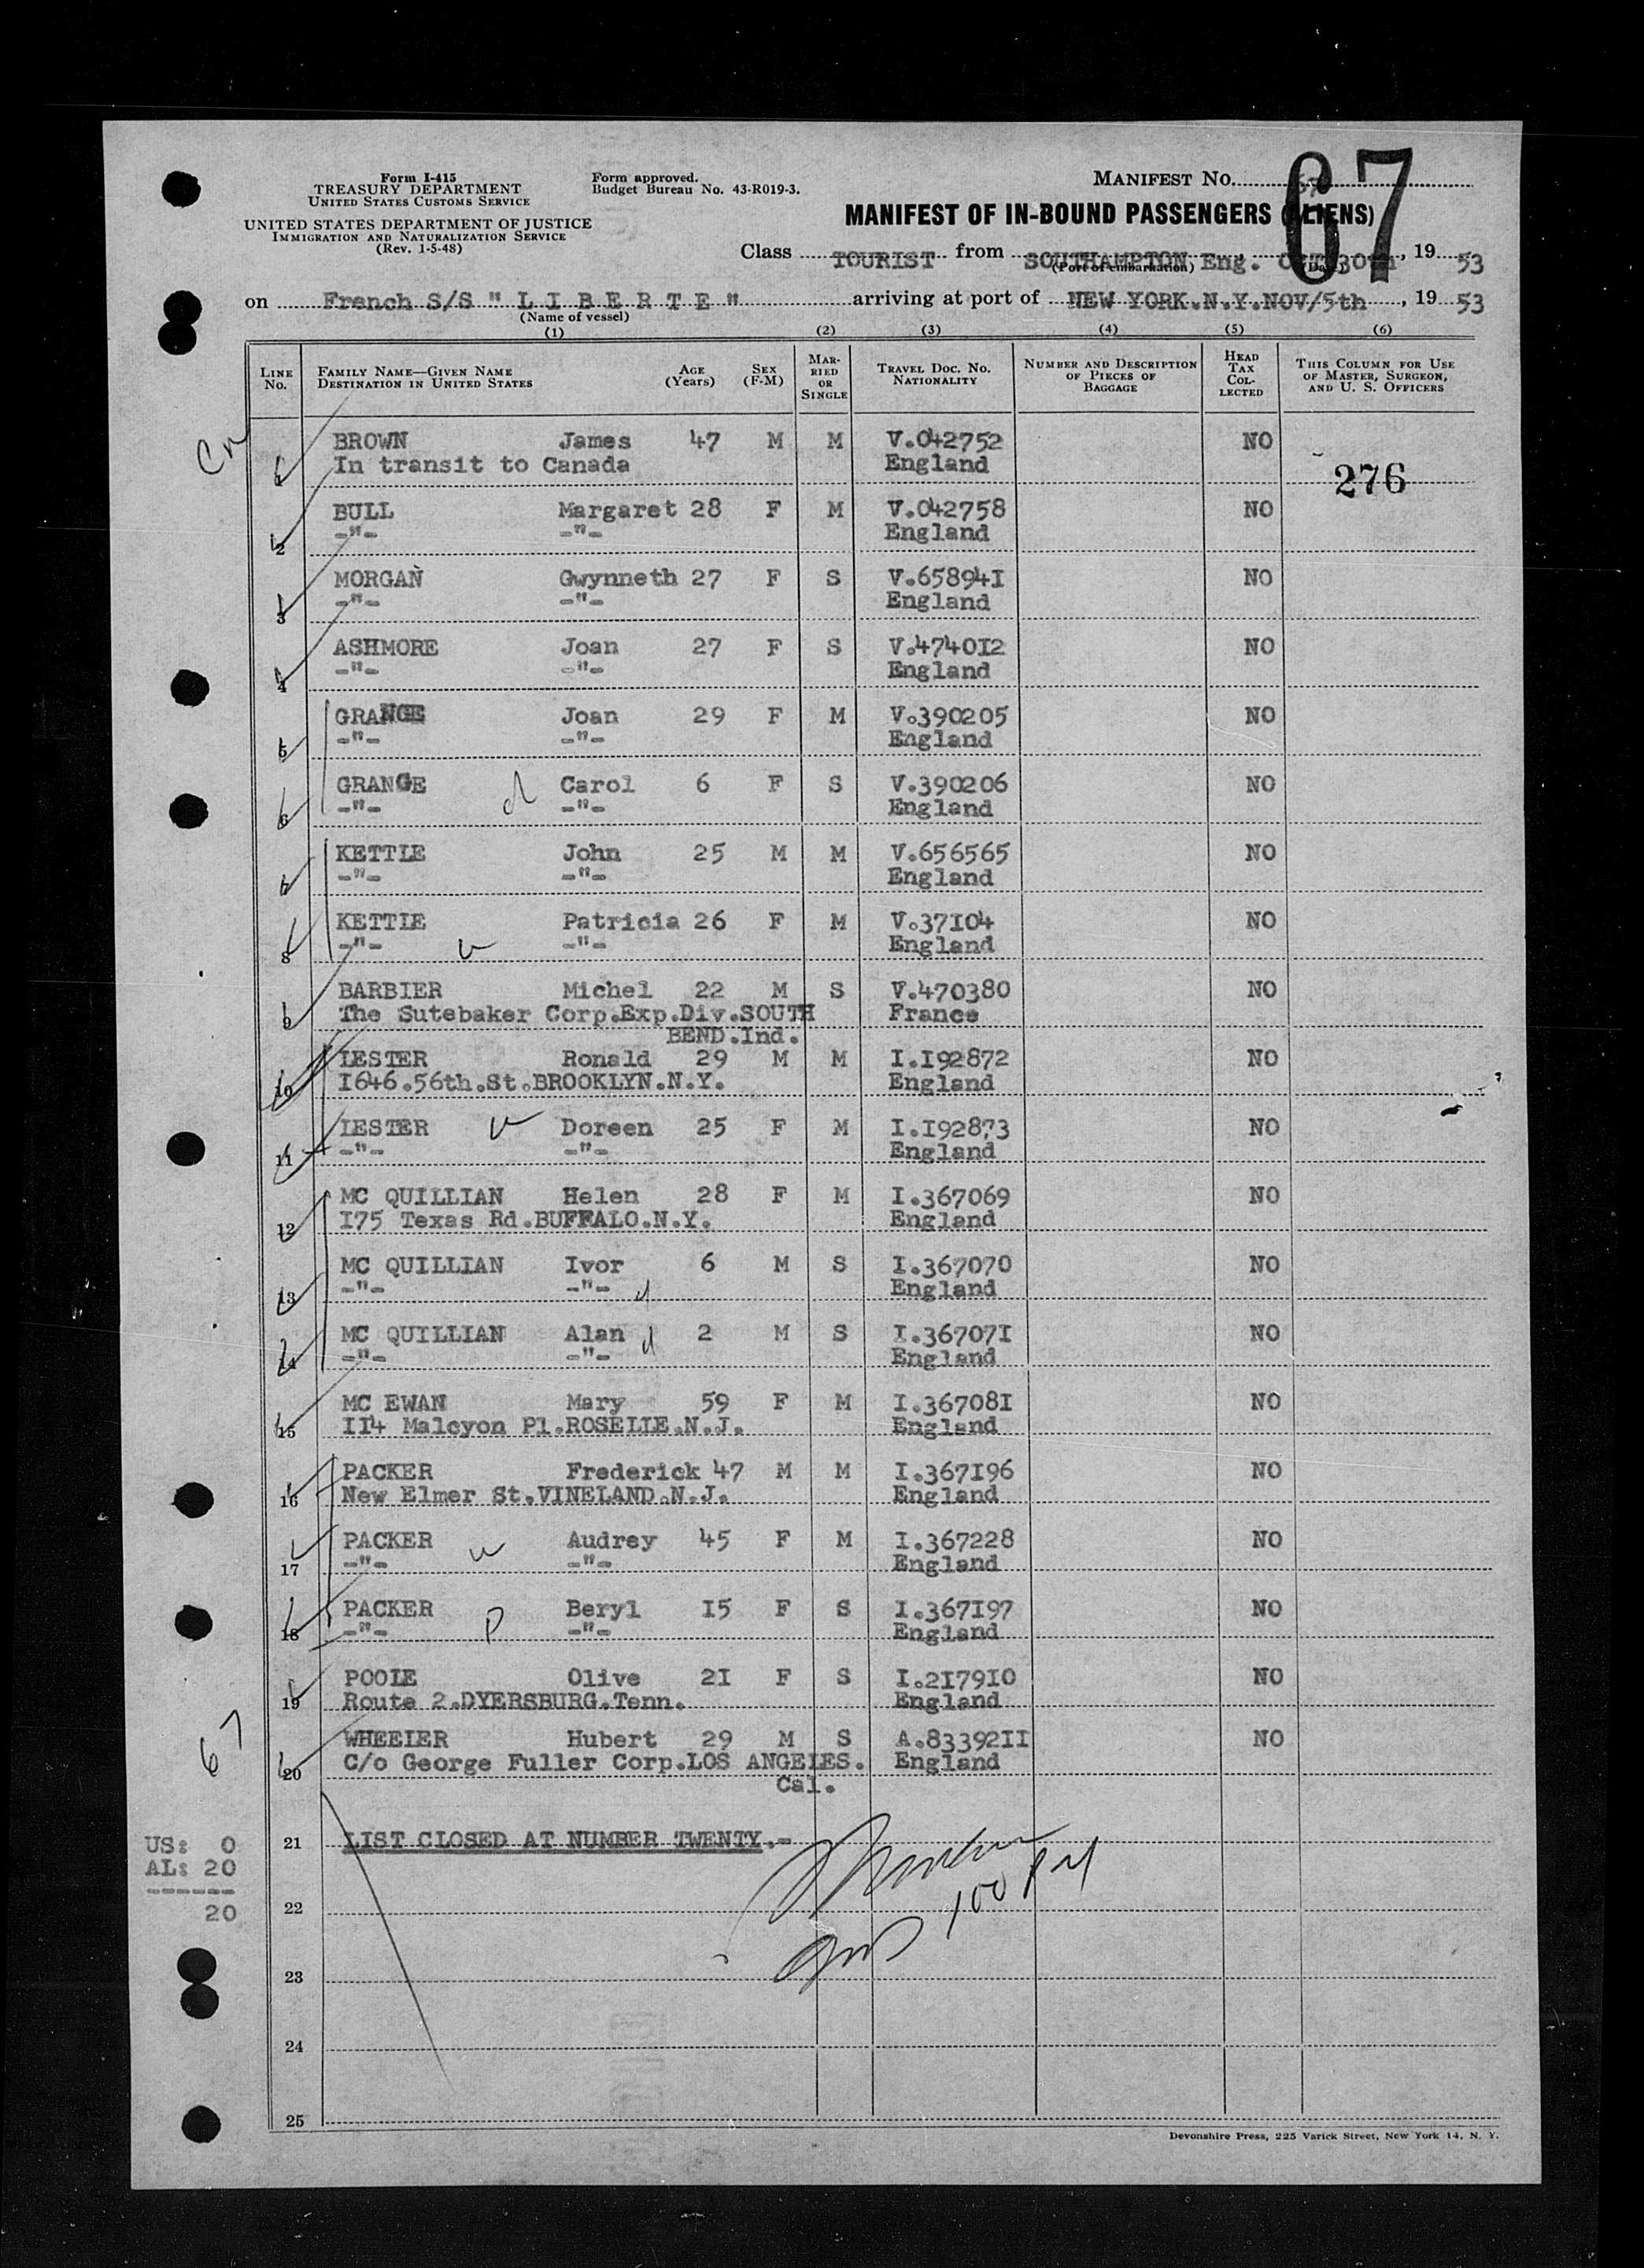 Form I-415
TREASURY DEPARTMENT
UNITED STATES CUSTOMS SERVICE
UNITED STATES DEPARTMENT OF JUSTICE
IMMIGRATION AND NATURALIZATION SERVICE
(Rev. 1-5-48)
Form approved.
Budget Bureau No. 43-R019-3.
MANIFEST NO. 67
MANIFEST OF IN-BOUND PASSENGERS (ALIENS)
Class TOURIST from SOUTHAMPTON Eng. OCT 30th, 19 53
(Port of embarkation) (Date)
on French S/S " L I B E R T E " arriving at port of NEW YORK.N.Y.NOV/5th, 19 53
(Name of vessel)
(1) (2) (3) (4) (5) (6)
LINE NO. FAMILY NAME—GIVEN NAME DESTINATION IN UNITED STATES AGE (Years) SEX (F-M) MARRIED OR SINGLE TRAVEL DOC. NO. NATIONALITY NUMBER AND DESCRIPTION OF PIECES OF BAGGAGE HEAD TAX COLLECTED THIS COLUMN FOR USE OF MASTER, SURGEON, AND U. S. OFFICERS
BROWN James 47 M M V.042752 NO
1 In transit to Canada England
276
BULL Margaret 28 F M V.042758 NO
2 -"- -"- England
MORGAN Gwynneth 27 F S V.65894I NO
3 -"- -"- England
ASHMORE Joan 27 F S V.4740I2 NO
4 -"- -"- England
GRANGE Joan 29 F M V.390205 NO
5 -"- -"- England
GRANGE d Carol 6 F S V.390206 NO
6 -"- -"- England
KETTLE John 25 M M V.656565 NO
7 -"- -"- England
KETTIE Patricia 26 F M V.37I04 NO
8 -"- -"- England
BARBIER Michel 22 M S V.470380 NO
9 The Sutebaker Corp.Exp.Div.SOUTH France
BEND.Ind.
IESTER Ronald 29 M M I.I92872 NO
10 I646.56th.St.BROOKLYN.N.Y. England
IESTER Doreen 25 F M I.I92873 NO
11 -"- -"- England
MC QUILLIAN Helen 28 F M I.367069 NO
12 I75 Texas Rd.BUFFALO.N.Y. England
MC QUILLIAN Ivor 6 M S I.367070 NO
13 -"- -"- d England
MC QUILLIAN Alan d 2 M S I.36707I NO
14 -"- -"- England
MC EWAN Mary 59 F M I.36708I NO
15 II4 Malcyon Pl.ROSELIE.N.J. England
PACKER Frederick 47 M M I.367I96 NO
16 New Elmer St.VINELAND.N.J. England
PACKER Audrey 45 F M I.367228 NO
17 -"- -"- England
PACKER Beryl I5 F S I.367I97 NO
18 -"- -"- England
POOLE Olive 2I F S I.2I79I0 NO
19 Route 2.DYERSBURG.Tenn. England
67
WHEELER Hubert 29 M S A.83392II NO
20 C/o George Fuller Corp.LOS ANGELES. England
Cal.
US: 0
AL: 20
------
20
21 LIST CLOSED AT NUMBER TWENTY.-
22
23
24
25
Devonshire Press, 225 Varick Street, New York 14, N. Y.